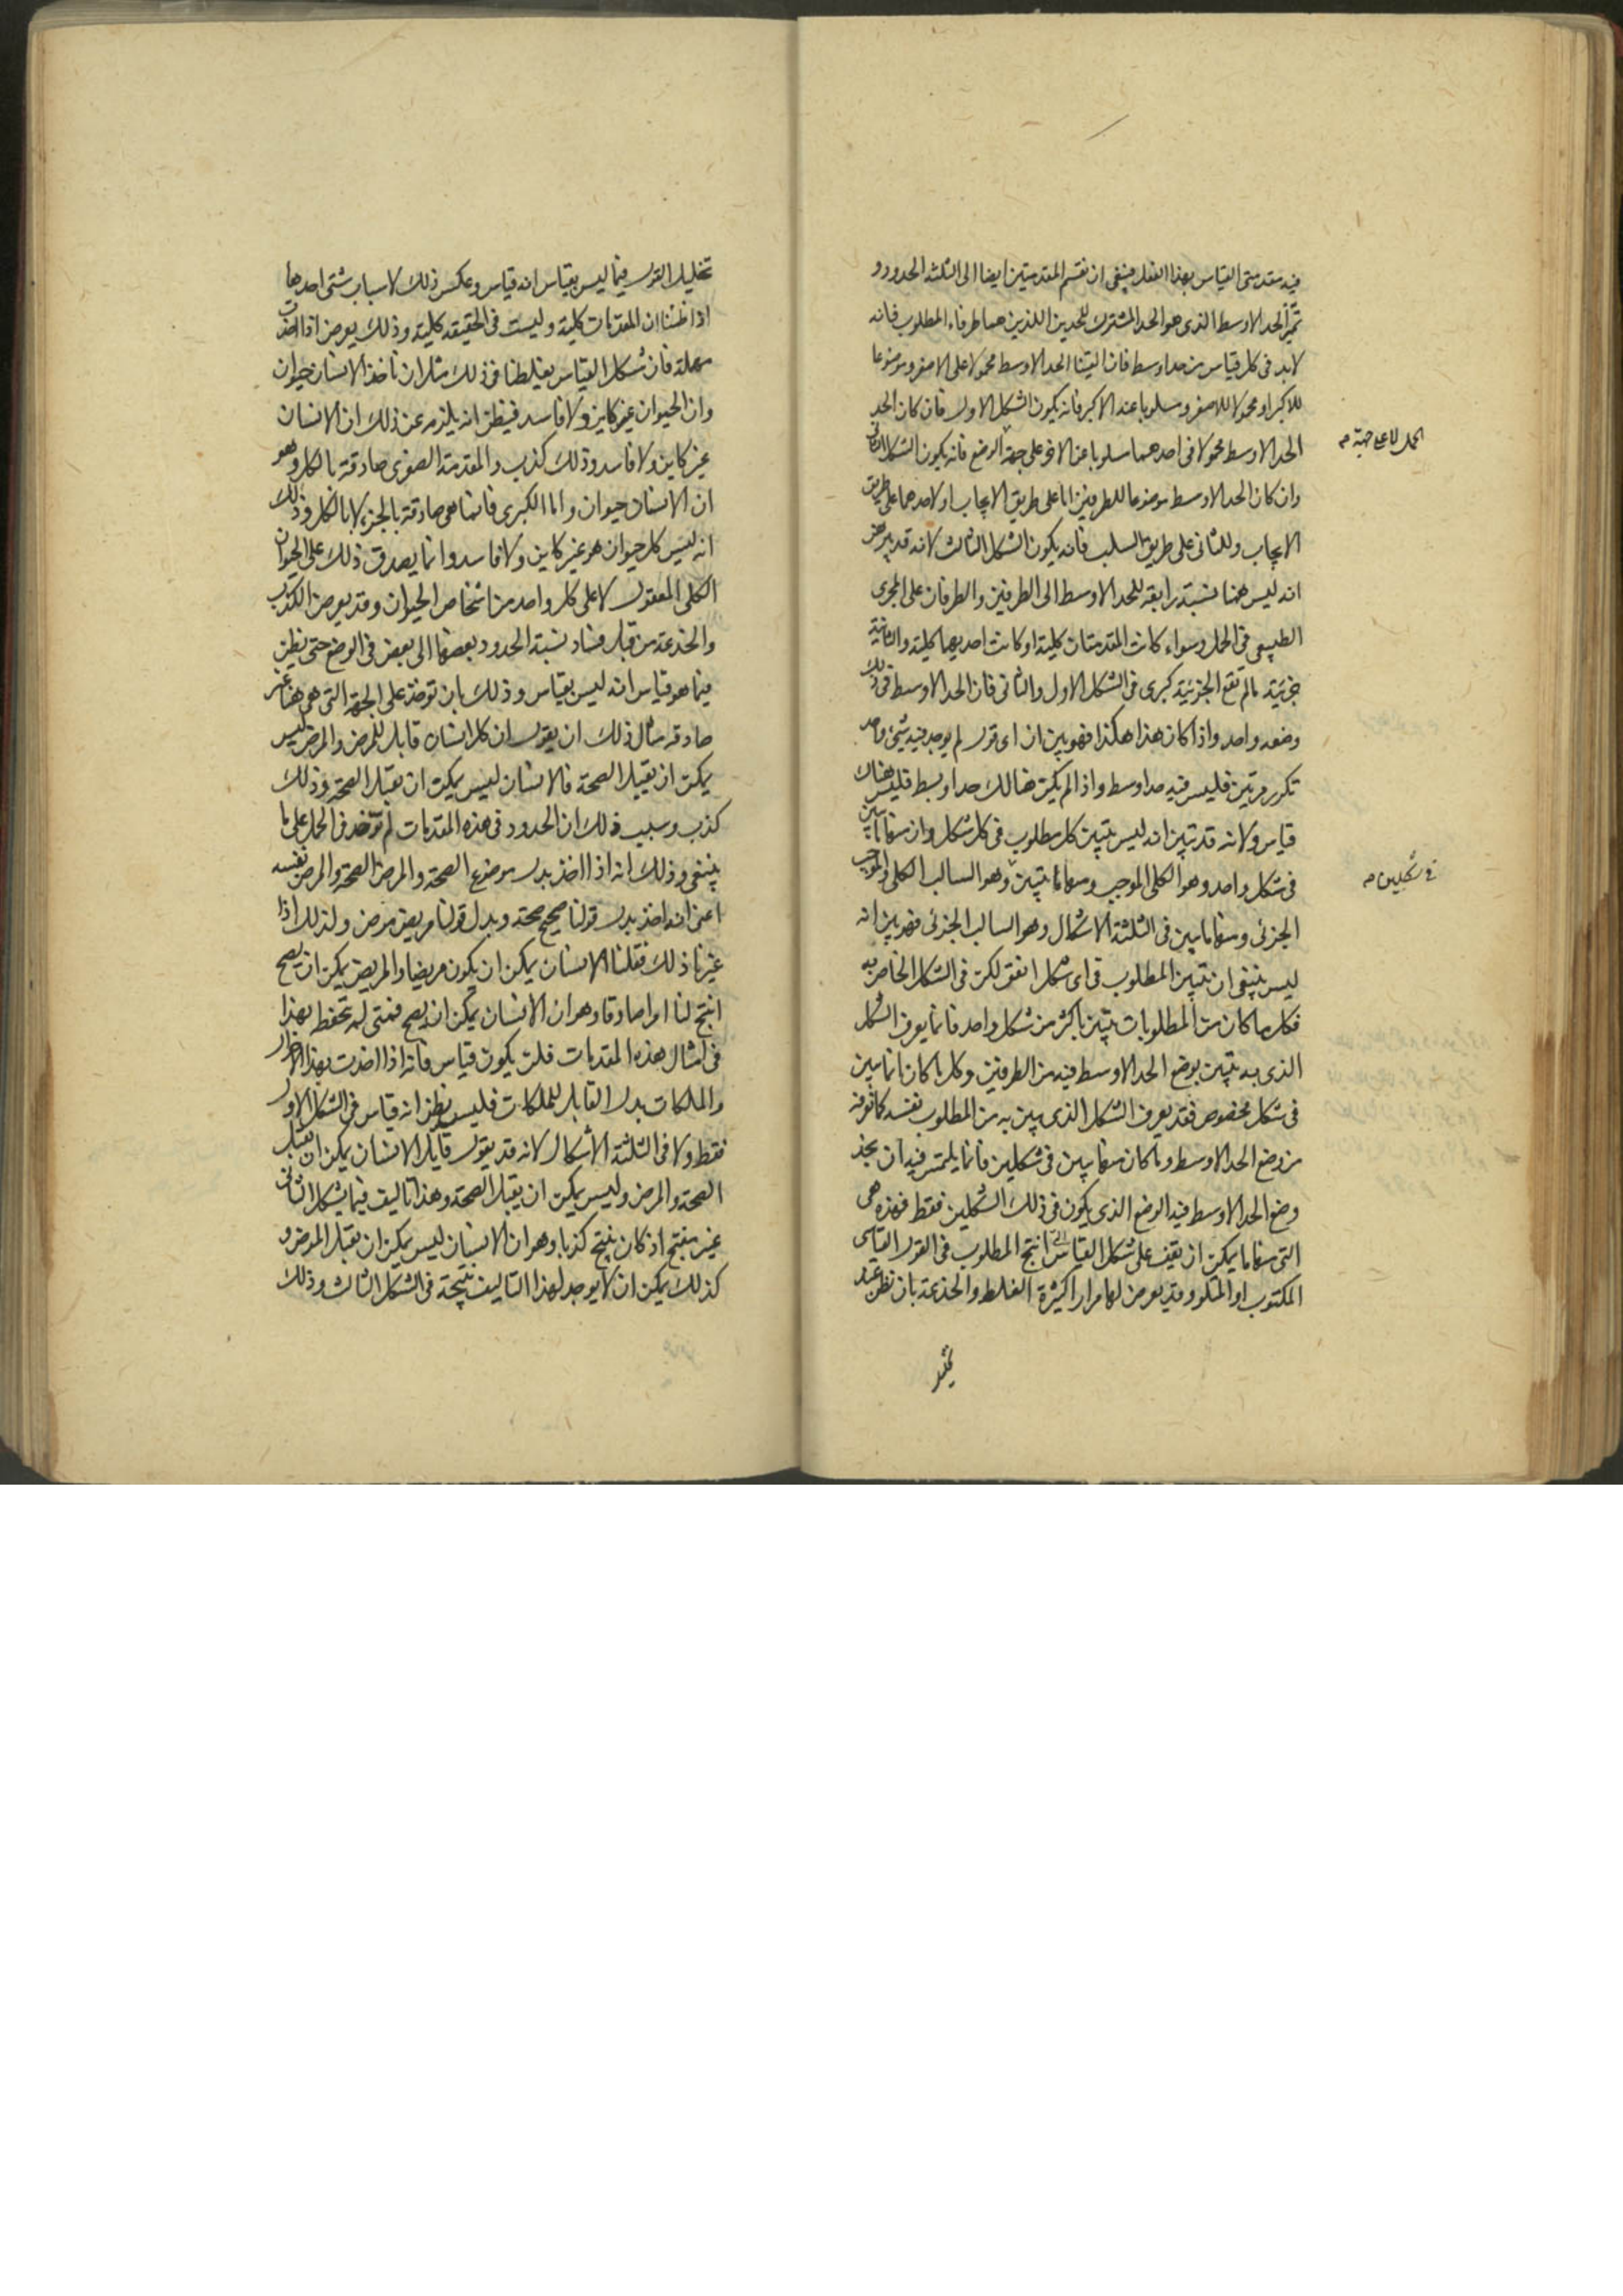 فيه مقدمتى القياس بهذا الفعل فينبغى ان نقسم المقدمتين ايضا الى الثلثة الحدود و
نميز الحد الاوسط الذى هو الحد المشترك للحدين اللذين هما طرفاء المطلوب فانه
لابد فى كل قياس من حد اوسط فان الفينا الحد الاوسط محمولا على الاصغر وموضوعا
للاكبر او محمولا للاصغر ومسلوبا عنه الاكبر فانه يكون الشكل الاول فان كان الحد
الحد الاوسط محمولا فى احدهما مسلوبا عن الاخر على جهة الوضع فانه يكون الشكل الثانى
الحمل لا على جهة م
وان كان الحد الاوسط موضوعا للطرفين اما على طريق الايجاب او لاحدهما على طريق
الايجاب وللثانى على طريق السلب فانه يكون الشكل الثالث لانه قد تبرهن
انه ليس ههنا نسبة رابعة للحد الاوسط الى الطرفين والطرفان على المجرى
الطبيعى فى الحمل وسواء كانت المقدمتان كلية او كانت احديهما كلية والثانية
جزئية مالم تقع الجزئية كبرى فى الشكل الاول والثانى فان الحد الاوسط فى ذلك
وضعه واحد واذا كان هذا هكذا فهو بين ان اى قول لم يوجد فيه شئ واحد
تكرر مرتين فليس فيه حد اوسط واذا لم يكن هنالك حد اوسط فليس هناك
قياس ولانه قد تبين ان ليس يتبين كل مطلوب فى كل شكل وان منها ما يتبين
فى شكل واحد وهو الكلى الموجب ومنها ما يتبين وهو السالب الكلى والموجب
فى شكلين م
الجزئى ومنها ما يبين فى الثلثة الاشكال وهو السالب الجزئى فهو بين انه
ليس ينبغى ان نتبين المطلوب فى اى شكل اتفق لكن فى الشكل الخاص به
فكل ما كان من المطلوبات يتبين باكثر من شكل واحد فانما يعرف الشكل
الذى به يتبين بوضع الحد الاوسط فيه من الطرفين وكل ما كان انما يبين
فى شكل مخصوص فقد يعرف الشكل الذى يبين به من المطلوب نفسه كما نعرفه
من وضع الحد الاوسط وما كان منها يبين فى شكلين فانما يلتمس فيه ان نجد
وضع الحد الاوسط فيه الوضع الذى يكون فى ذلك الشكلين فقط فهذه هى
التى منها ما يمكن ان نقف على شكل القياس الذى انتج المطلوب فى القول القياسى
المكتوب او المتلو وقد يعرض لها مرارا كثيرة الغلط والخدعة بان نظن عند
تخليل القول فيما ليس بقياس انه قياس وعكس ذلك لاسباب شتى احدها
اذا ظننا ان المقدمات كلية وليست فى الحقيقة كلية وذلك يعرض اذا اخذت
مهملة فان شكل القياس يغلطنا فى ذلك مثل ان ناخذ الانسان حيوان
وان الحيوان غير كاين ولا فاسد فيظن انه يلزم عن ذلك ان الانسان
غير كاين ولا فاسد وذلك كذب والمقدمة الصغرى صادقة بالكل وهو
ان الانسان حيوان واما الكبرى فانما هى صادقة بالجزء لا بالكل وذلك
انه ليس كل حيوان هو غير كاين ولا فاسد وانما يصدق ذلك على الحيوان
الكلى المعقول لا على كل واحد من اشخاص الحيوان وقد يعرض الكذب
والخدعة من قبل فساد نسبة الحدود بعضها الى بعض فى الوضع حتى يظن
فيما هو قياس انه ليس بقياس وذلك بان توخذ على الجهة التى هى هنا غير
صادقة مثال ذلك ان يقول ان كل انسان قابل للمرض والمرض ليس
يمكن ان يقبل الصحة فالانسان ليس يمكن ان يقبل الصحة وذلك
كذب وسبب ذلك ان الحدود فى هذه المقدمات لم توخذ فى الحمل على ما
ينبغى وذلك انه اذا اخذ بدل موضوع الصحة والمرض الصحة والمرض نفسه
اعنى انه اخذ بدل قولنا صحيح صحة وبدل قولنا مريض مرض ولذلك اذا
غيرنا ذلك فقلنا الانسان يمكن ان يكون مريضا والمريض يمكن ان يصح
انتج لنا امرا صادقا وهو ان الانسان يمكن ان يصح فمتى لم تحفظ بهذا
فى امثال هذه المقدمات فلن يكون قياس فانه اذا اخذت بهذا الاحوال
والملكات بدل القابل للملكات فليس نظن انه قياس فى الشكل الاول
فقط ولا فى الثلثة الاشكال لانه قد يقول قايل الانسان يمكن ان يقبل
الصحة والمرض وليس يمكن ان يقبل الصحة وهذا تاليف فيما يشكل الثانى
غير منتج اذ كان ينتج كذبا وهو ان الانسان ليس يمكن ان يقبل المرض و
كذلك يمكن ان لا يوجد لهذا التاليف نتيجة فى الشكل الثالث وذلك